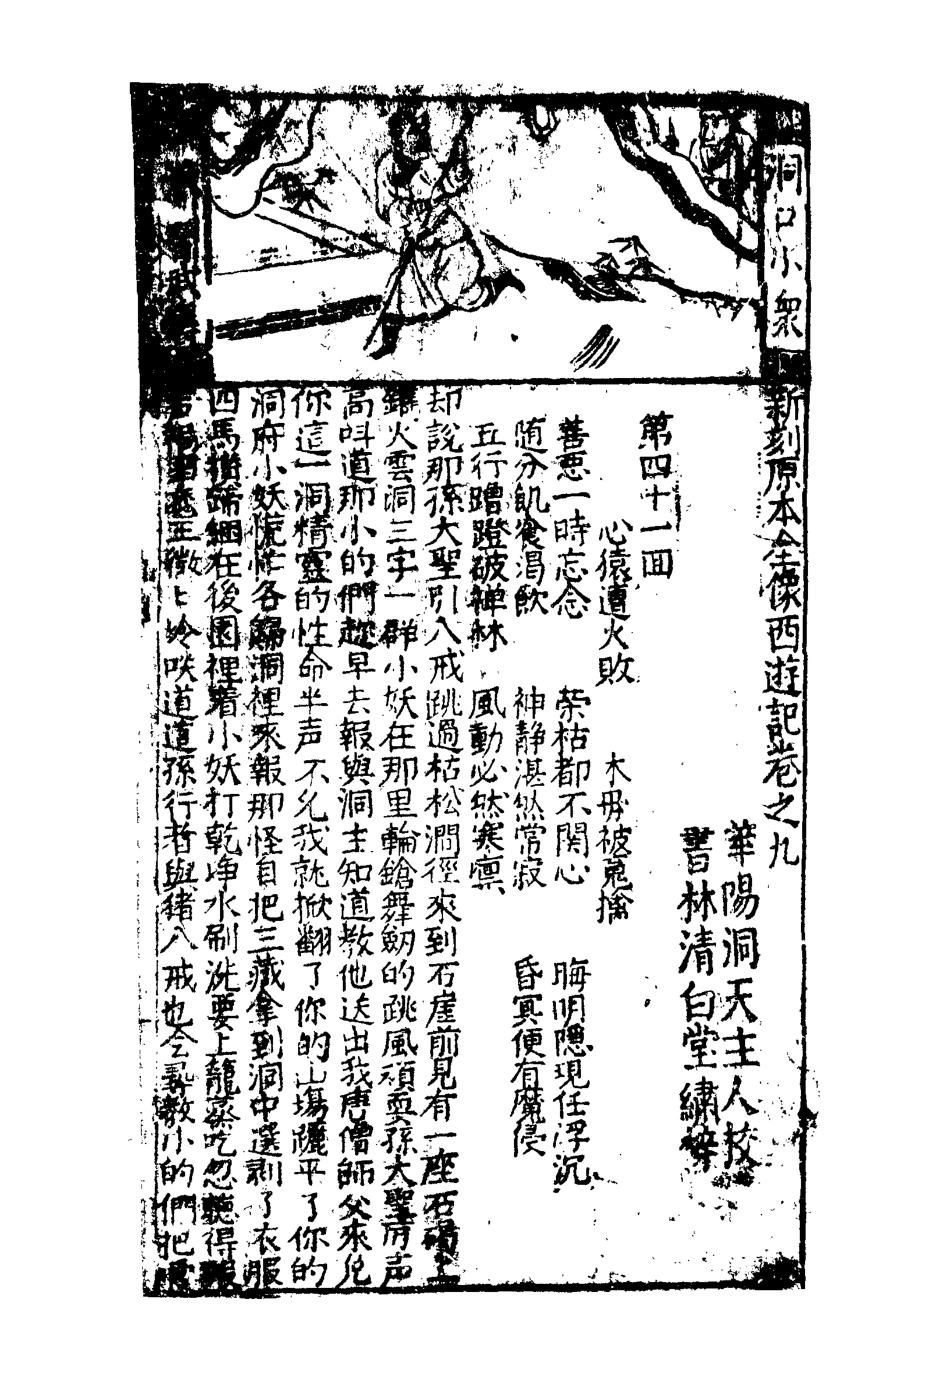 洞口小衆
新刻原本全像西遊記卷之九
華陽洞天主人校
書林清白堂繡梓
第四十一囬
心猿遭火敗 木母被魔擒
善惡一時忘念 榮枯都不関心 晦明隱現任浮沉
随分飢飡渴飲 神静湛然常寂 昏冥便有魔侵
五行蹭蹬破禪林 風動必然寒凛
却説那孫大聖引八戒跳過枯松澗徑來到石崖前見有一座石碣上
鐫火雲洞三字一群小妖在那里輪鎗舞劒的跳風頑耍孫大聖厲声
高呌道那小的們趂早去報與洞主知道教他送出我唐僧師父來免
你這一洞精靈的性命半声不允我就掀翻了你的山塲䠠平了你的
洞府小妖慌忙各歸洞裡來報那怪自把三藏拿到洞中選剥了衣服
四馬攢蹄綑在後園裡着小妖打乾净水刷洗要上籠蒸吃忽聽得報
王微上冷咲道這孫行者與猪八戒也会尋教小的們把